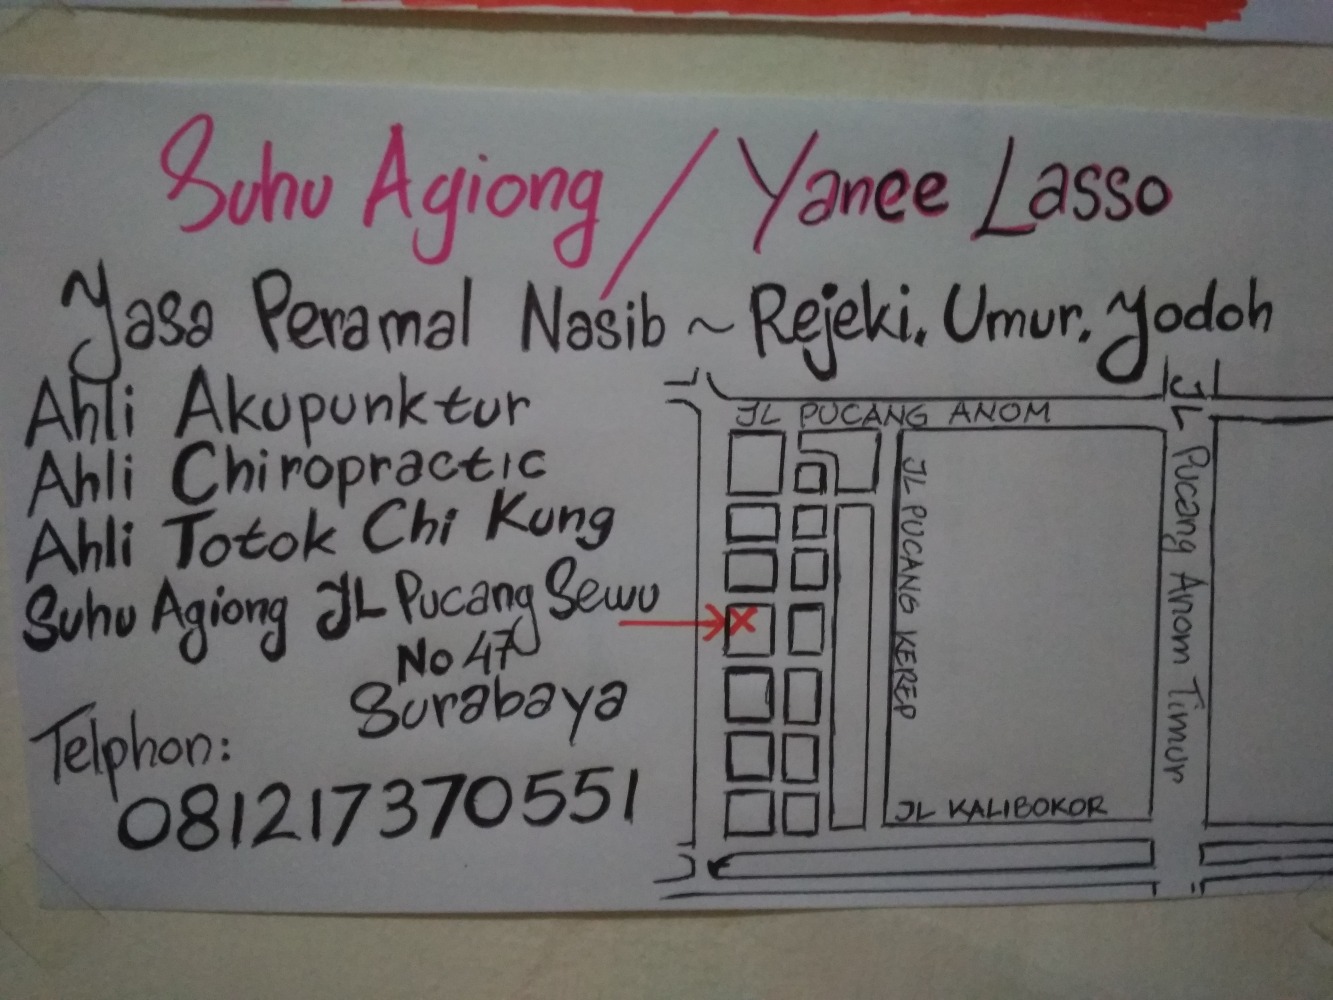 Suhu Agiong / Yanee Lasso
Yasa Peramal Nasib ~ Rejeki. Umur. Yodoh
Ahli Akupunktur
Ahli Chiropractic
Ahli Totok Chi Kung
Suhu Agiong JL Pucang Sewu
No 47
Surabaya
Telphon:
081217370551
JL PUCANG ANOM
JL PUCANG KEREP
JL Pucang Anom Timur
JL KALIBOKOR